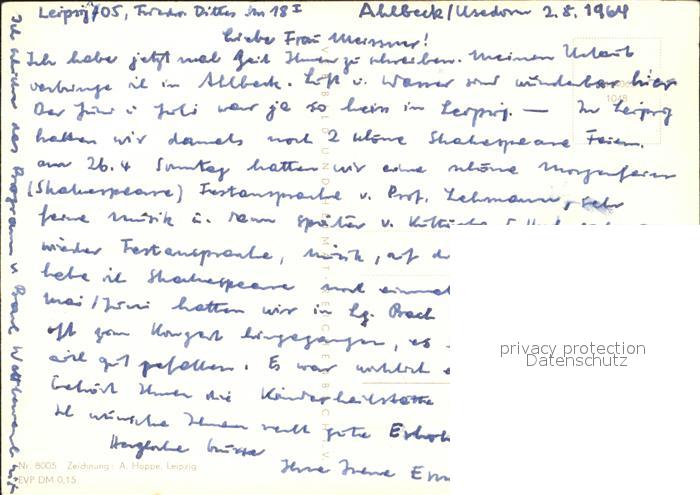 Leipzig 705, Frieda Dittes 18 I Ahlbeck/Usedom 2.8.1964
Liebe Frau Meissner!
Ich habe jetzt mal Zeit Ihnen zu schreiben. Meinen Urlaub
verbringe ich in Ahlbeck. Luft u. Wasser sind wunderbar hier
Der Juni u Juli war ja so heiss in Leipzig. — In Leipzig
hatten wir damals noch 2 schöne Shakespeare Feiern.
am 26.4 Sonntag hatten wir eine schöne Morgenfeier
(Shakespeare) Festansprache v. Prof. Lehmann, sehr
feine Musik u. dann später v.
wieder Festansprache, Musik, auf
habe ich Shakespeare noch einmal
Mai/Juni hatten wir in Lg. Bach
oft zum Konzert hingegangen, es
viel gut gefallen. Es war wirklich
Gehört Ihnen die Kinderheilstätte
Ich wünsche Ihnen recht gute
Herzliche Grüsse
Ihre Irene
Ich schicke das Programm v. Bach Wettbewerb mit
1048
privacy protection
Datenschutz
Nr. 8005 Zeichnung: A. Hoppe, Leipzig
EVP DM 0,15